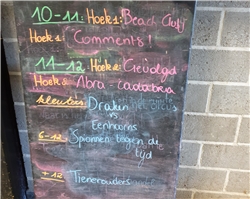 10-11: Hoek 1: Beach
Hoek 1: "Comments!
11-12: Hoek 2:
Hoek 2: Abra-cadabra
kleuters: Draken
vs.
Eenhoorns
6-12 Spannen tegen de
tijd
+12 Tienerouders